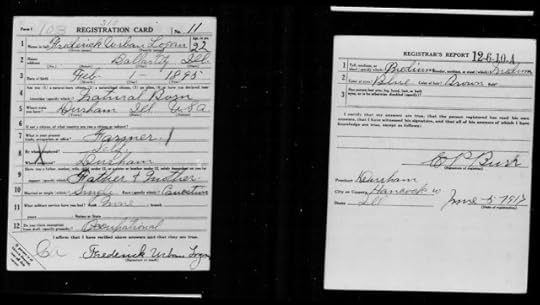 Form 1 103 REGISTRATION CARD No. 11
1 Name in full Frederick Urban Logan Age, in yrs. 22
2 Home address Dallas City Ill
3 Date of birth Feb 1 1895
4 Are you (1) a natural-born citizen, (2) a naturalized citizen, (3) an alien, (4) or have you declared your intention (specify which)? Natural Born
5 Where were you born? Durham Ill USA
6 If not a citizen, of what country are you a citizen or subject?
7 What is your present trade, occupation, or office? Farmer
8 By whom employed?
Where employed? Durham
9 Have you a father, mother, wife, child under 12, or a sister or brother under 12, solely dependent on you for support (specify which)? Father & Mother
10 Married or single (which)? Single Race (specify which)? Caucasian
11 What military service have you had? Rank None branch
years Nation or State
12 Do you claim exemption from draft (specify grounds)? Occupational
I affirm that I have verified above answers and that they are true.
Frederick Urban Logan
(Signature or mark)
REGISTRAR'S REPORT 12-6-10-A
1 Tall, medium, or short (specify which)? Medium Slender, medium, or stout (which)? Medium
2 Color of eyes? Blue Color of hair? Brown Bald?
3 Has person lost arm, leg, hand, foot, or both eyes, or is he otherwise disabled (specify)?
I certify that my answers are true, that the person registered has read his own answers, that I have witnessed his signature, and that all of his answers of which I have knowledge are true, except as follows:
(Signature of registrar)
Precinct Durham
City or County Hancock
State Ill June 5 1917
(Date of registration)